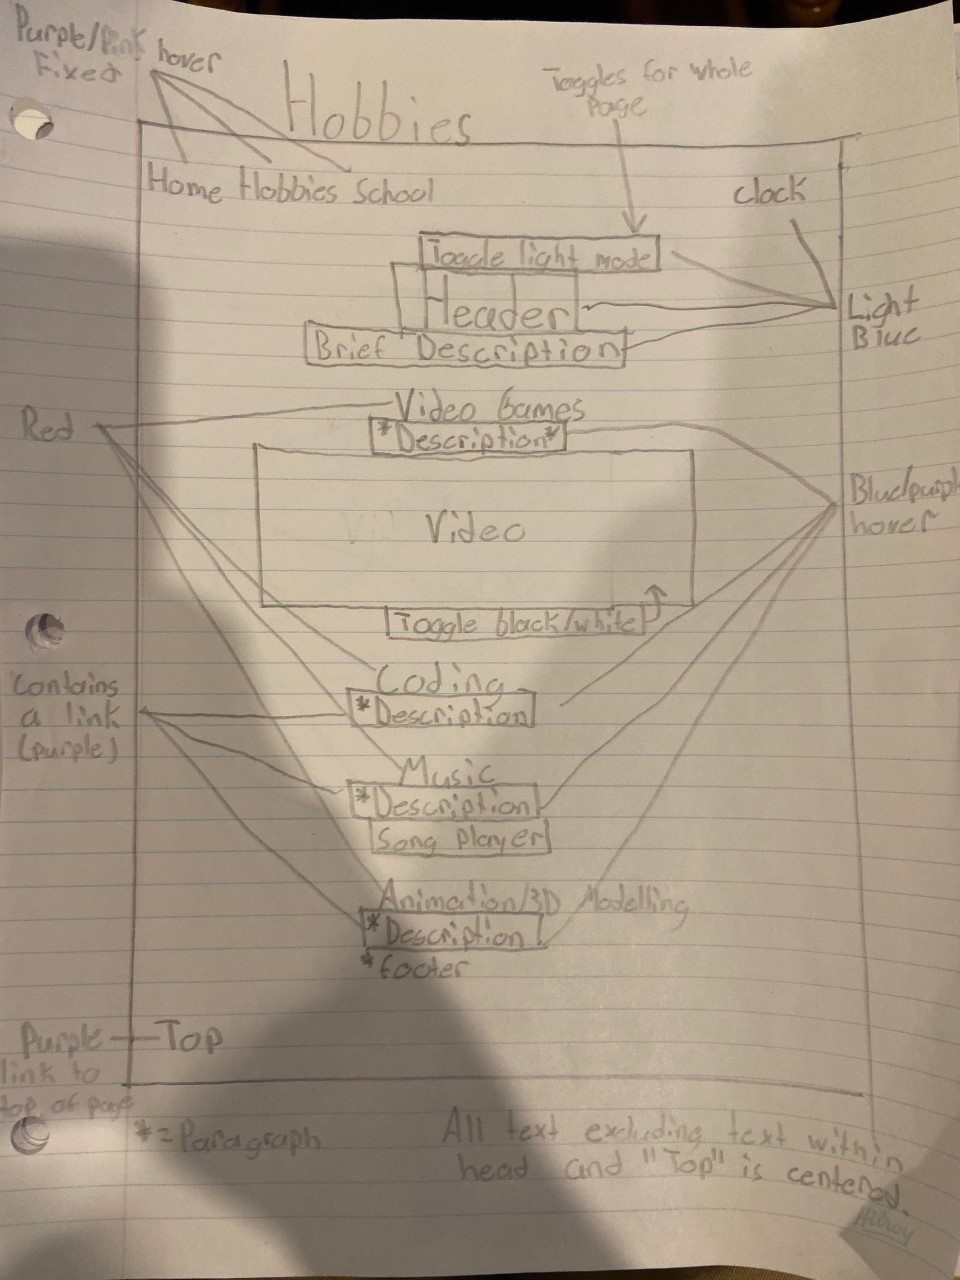 Purple/Pink hover
Fixed
Hobbies
Toggles for whole
Page
Home Hobbies School
Clock
Toggle light mode
Header
Brief Description
Light
Blue
Video Games
*Description*
Red
Video
Blue/purpl
hover
Toggle black/white
Contains
a link
(purple)
Coding
*Description
Music
*Description
Song player
Animation/3D Modelling
*Description
*footer
Purple
Top
link to
top of page
*=Paragraph
All text excluding text within
head and "Top" is centered.
Hilroy